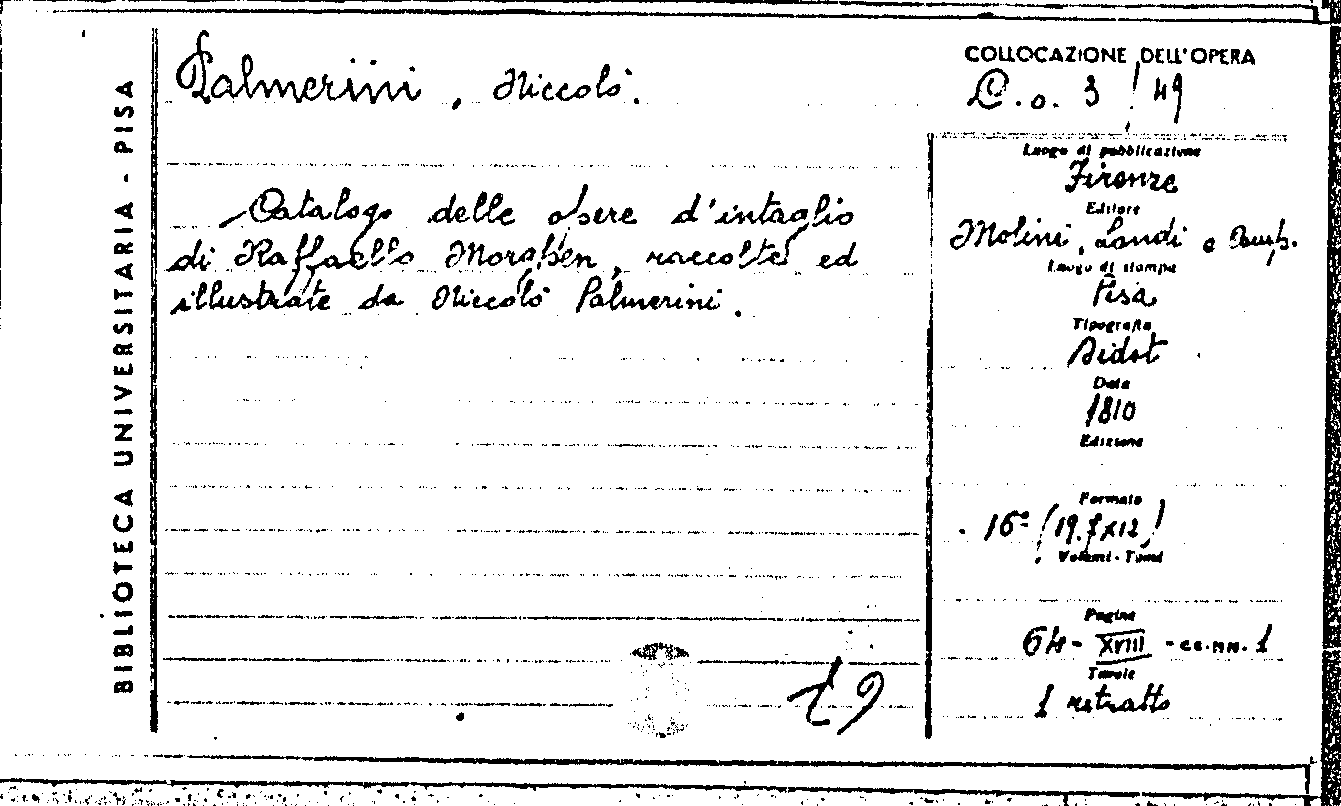 BIBLIOTECA UNIVERSITARIA - PISA
Palmerini, Niccolò.
Catalogo delle opere d'intaglio
di Raffaello Morghen, raccolte ed
illustrate da Niccolò Palmerini.
COLLOCAZIONE DELL'OPERA
o. 3 / 49
Luogo di pubblicazione
Firenze
Editore
Molini, Landi e Comp.
Luogo di stampa
Pisa
Tipografia
Didot
Data
1810
Edizione
Formato
16° (19.
Volumi - Tomi
Pagine
64 - XVIII - cc.nn. 1
Tavole
1 ritratto